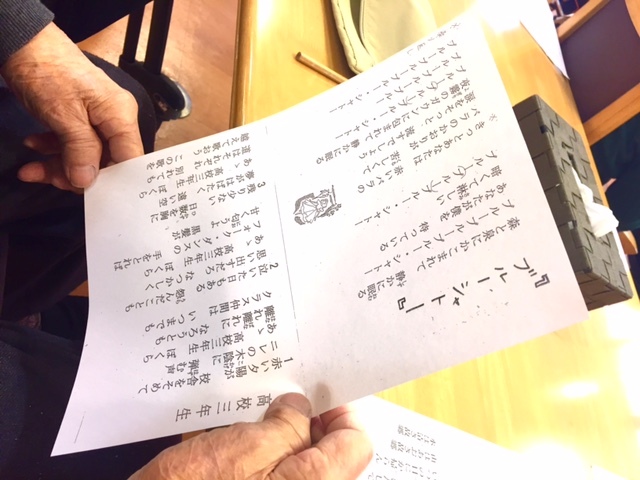 『ブルー・シャトー』
森と泉にかこまれて 静かに眠る
ブルー ブルー ブルー・シャトー
あなたが僕を 待ってる
暗くて淋しい
ブルー ブルー ブルー・シャトー
※ きっとあなたは 赤いバラの
バラのかおりが 苦しくて
涙をそっと 流すでしょう
夜霧のガウンに包まれて 静かに眠る
ブルー ブルー ブルー・シャトー
高校三年生
1 赤い夕陽が 校舎をそめて
ニレの木陰に 弾む声
あゝ 高校三年生 ぼくら
離れ離れに なろうとも
クラス仲間は いつまでも
2 泣いた日もある 怨んだことも
思い出すだろ なつかしく
あゝ 高校三年生 ぼくら
フォーク・ダンスの 手をとれば
甘く匂うよ 黒髪が
3 残り少ない 日数を胸に
夢がはばたく 遠い空
あゝ 高校三年生 ぼくら
道はそれぞれ 別れても
越えて歌おう この歌を